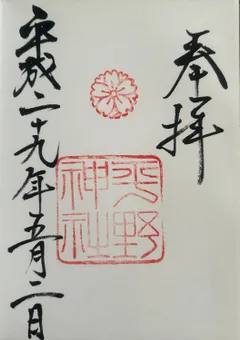 奉拝
平野
神社
平成二十九年五月二日